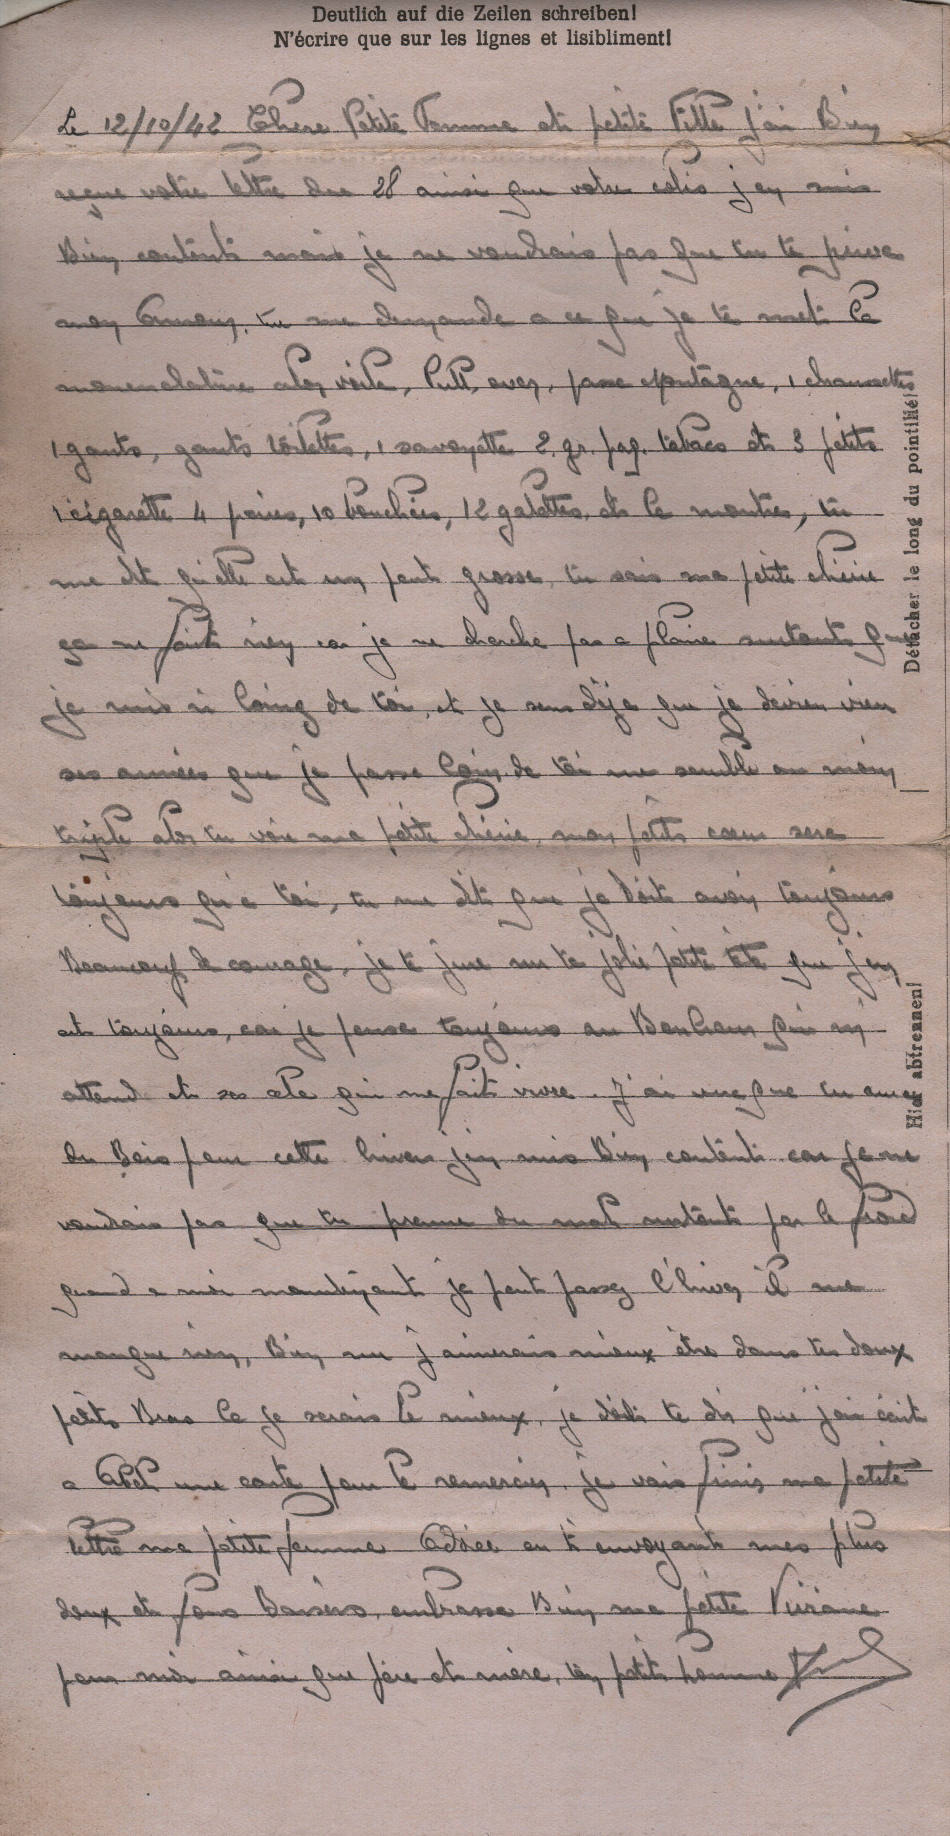 Deutlich auf die Zeilen schreiben!
N'écrire que sur les lignes et lisibliment!
Le 12/10/42 Chere Petite Femme et petite Fille j'ai Bien
reçue votre lettre du 28 ainsi que votre colis j'en suis
Bien contént mais je ne voudrais pas que tu te prive
mon Amour, tu me demande a ce que je te met la
nomenclature alor voila, Pull, over, passe Montagne, 1 chaussettes
1 gants, gants toilettes, 1 savonette 2 gr. paq. tabacs et 3 petits
1 cigarette 4 poires, 10 bouchées, 12 galettes, et la montre, tu
me dit qu'elle est un peut grosse, tu sais ma petite chérie
ça ne fait rien car je ne cherche pas a plaire surtout que
je suis si loing de toi, et je sens déja que je devien vieu
ses années que je passe loin de toi me semble au moin
triple alor tu voie ma petite chérie, mon petit coeur sera
toujours qu'a toi, tu me dit que je doit avoir toujours
Beaucoup de courage, je te jure sur ta jolie petite tête que j'en
et toujours, car je pense toujours au Bonheur qui m'
attend et ses cela qui me fait vivre. J'ai vue que tu auras
du Bois pour cette hiver j'en suis Bien contént car je ne
voudrais pas que tu prenne du mal surtout par le froid
quand a moi maintenant je peut passer l'hiver il me
manque rien, Bien sur j'aimerais mieux être dans tes deux
petits Bras la je serais le mieux, je te dis que j'ai écrit
a Abel une carte pour le remercier. je vais finir ma petite
lettre ma petite femme Adorée en t'envoyant mes plus
doux et fous Baisers, embrasse Bien ma petite Viviane
pour moi ainsi que père et mère, ton petit homme
Détacher le long du pointillé!
Hier abtrennen!